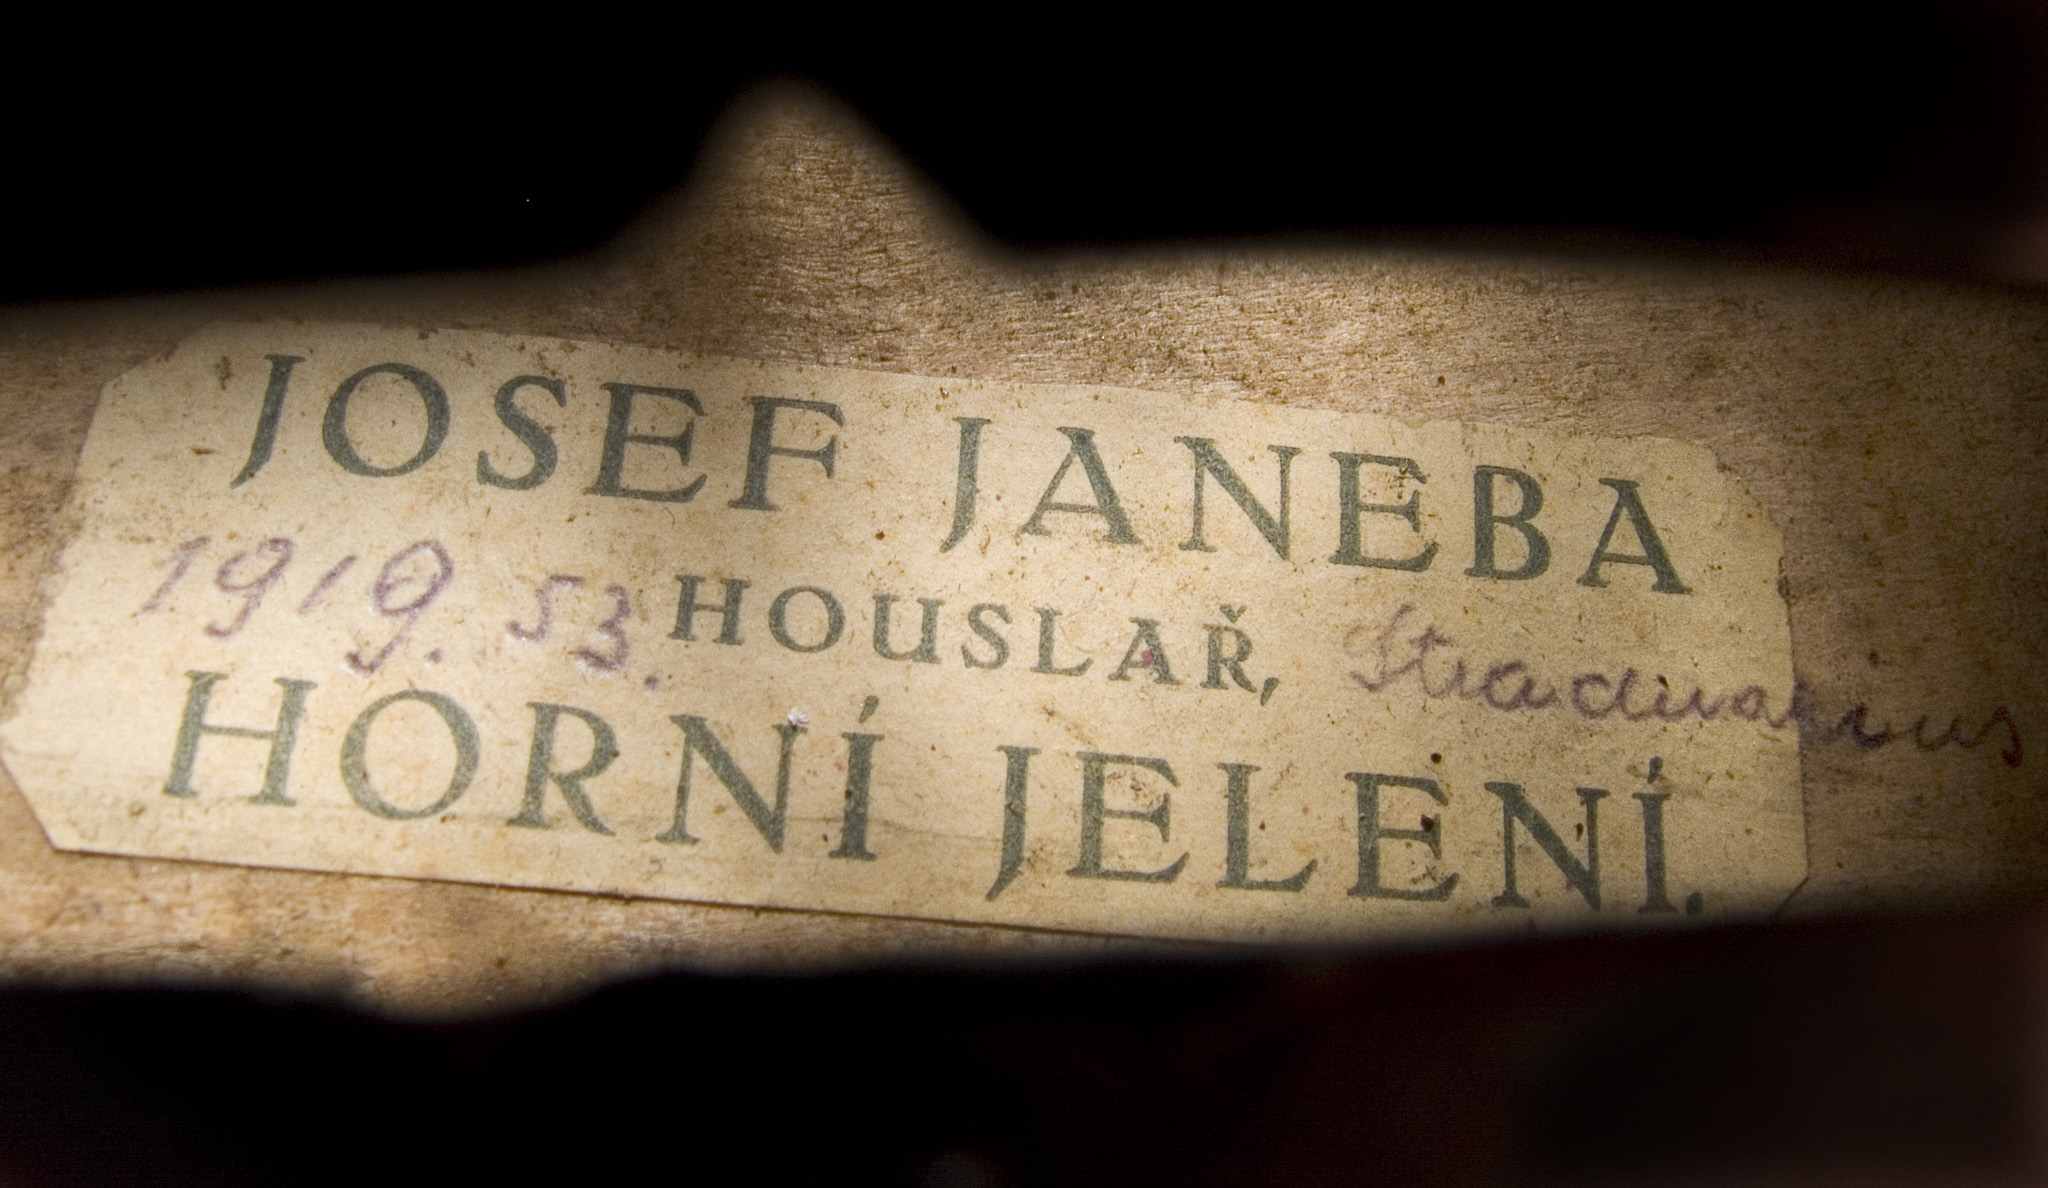 JOSEF JANEBA
1919. 53. HOUSLAŘ, Stradivarius
HORNÍ JELENÍ.